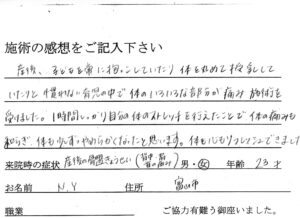 施術の感想をご記入下さい
産後、子どもを常に抱っこしていたり 体を丸めて授乳して
いたりと慣れない育児の中で体のいろいろな部分が痛み 施術を
受けました。1時間しっかり自分の体のストレッチを行えたことで体の痛みも
和らぎ、体も少しずつやわらかくなったと思います。体も心もリフレッシュできました
来院時の症状 産後の骨盤きょうせい 男・女 年齢 23才
お名前 N.Y 住所 富山市
職業 ご協力有難う御座いました。